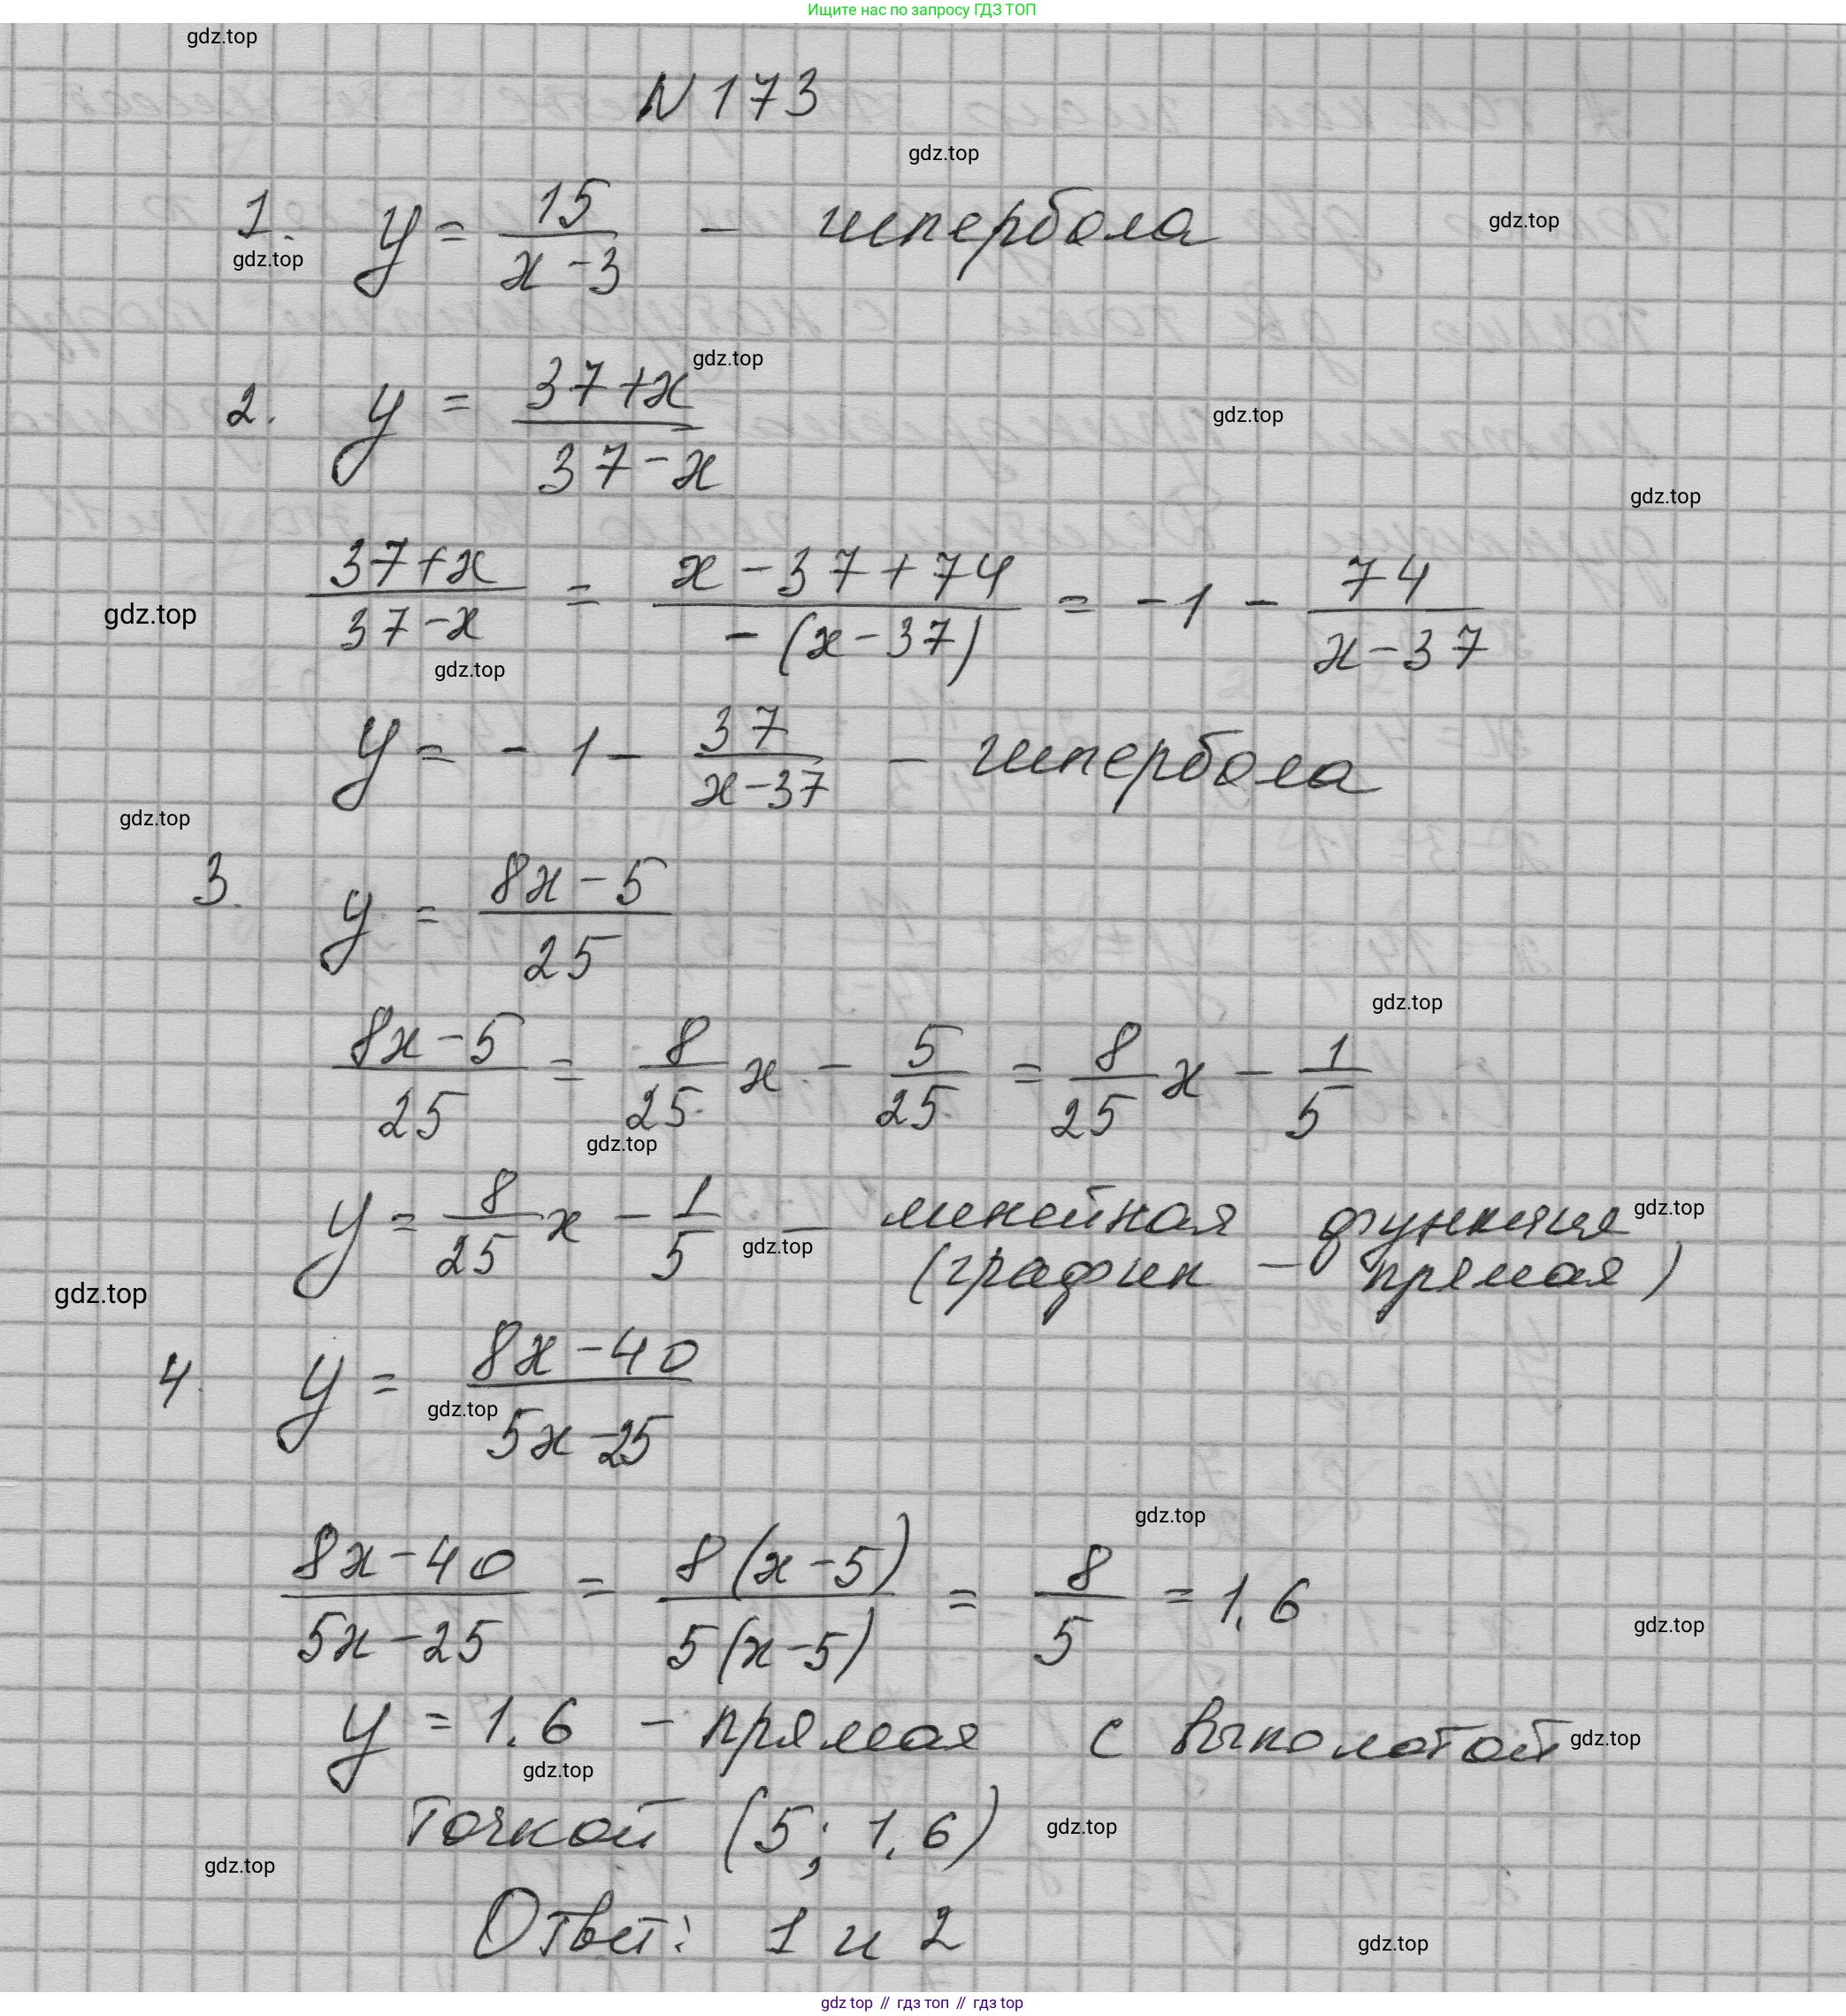 Ищите нас по запросу ГДЗ ТОП
gdz.top
N 173
gdz.top
1. y = 15/(x-3) - гипербола
gdz.top
gdz.top
gdz.top
2. y = (37+x)/(37-x)
gdz.top
gdz.top
(37+x)/(37-x) = (x-37+74)/(-(x-37)) = -1 - 74/(x-37)
gdz.top
gdz.top
y = -1 - 37/(x-37) - гипербола
gdz.top
3. y = (8x-5)/25
gdz.top
(8x-5)/25 = 8/25 x - 5/25 = 8/25 x - 1/5
gdz.top
y = 8/25 x - 1/5 - линейная функция
gdz.top
gdz.top
(график - прямая)
gdz.top
4. y = (8x-40)/(5x-25)
gdz.top
gdz.top
(8x-40)/(5x-25) = 8(x-5)/(5(x-5)) = 8/5 = 1.6
gdz.top
y = 1.6 - прямая с выколотой
gdz.top
gdz.top
точкой (5; 1.6)
gdz.top
gdz.top
Ответ: 1 и 2
gdz.top
gdz top // гдз топ // gdz top